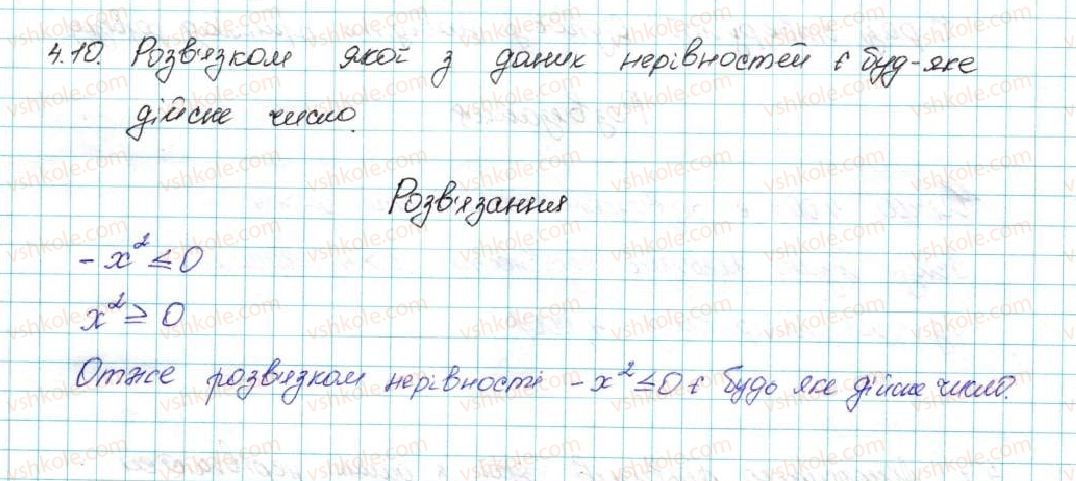 4.10. Розв'язком якої з даних нерівностей є буд-яке
дійсне число.
Розв'язання
-x² ≤ 0
x² ≥ 0
Отже розв'язком нерівності -x² ≤ 0 є будь яке дійсне число.